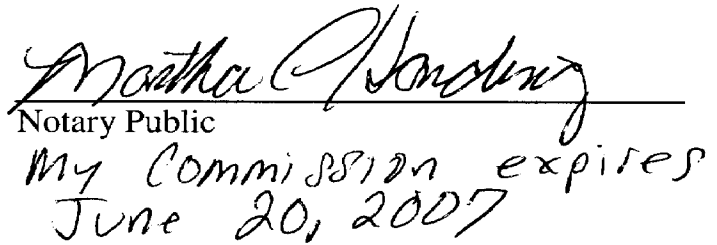 Martha
Notary Public
My Commission expires
June 20, 2007